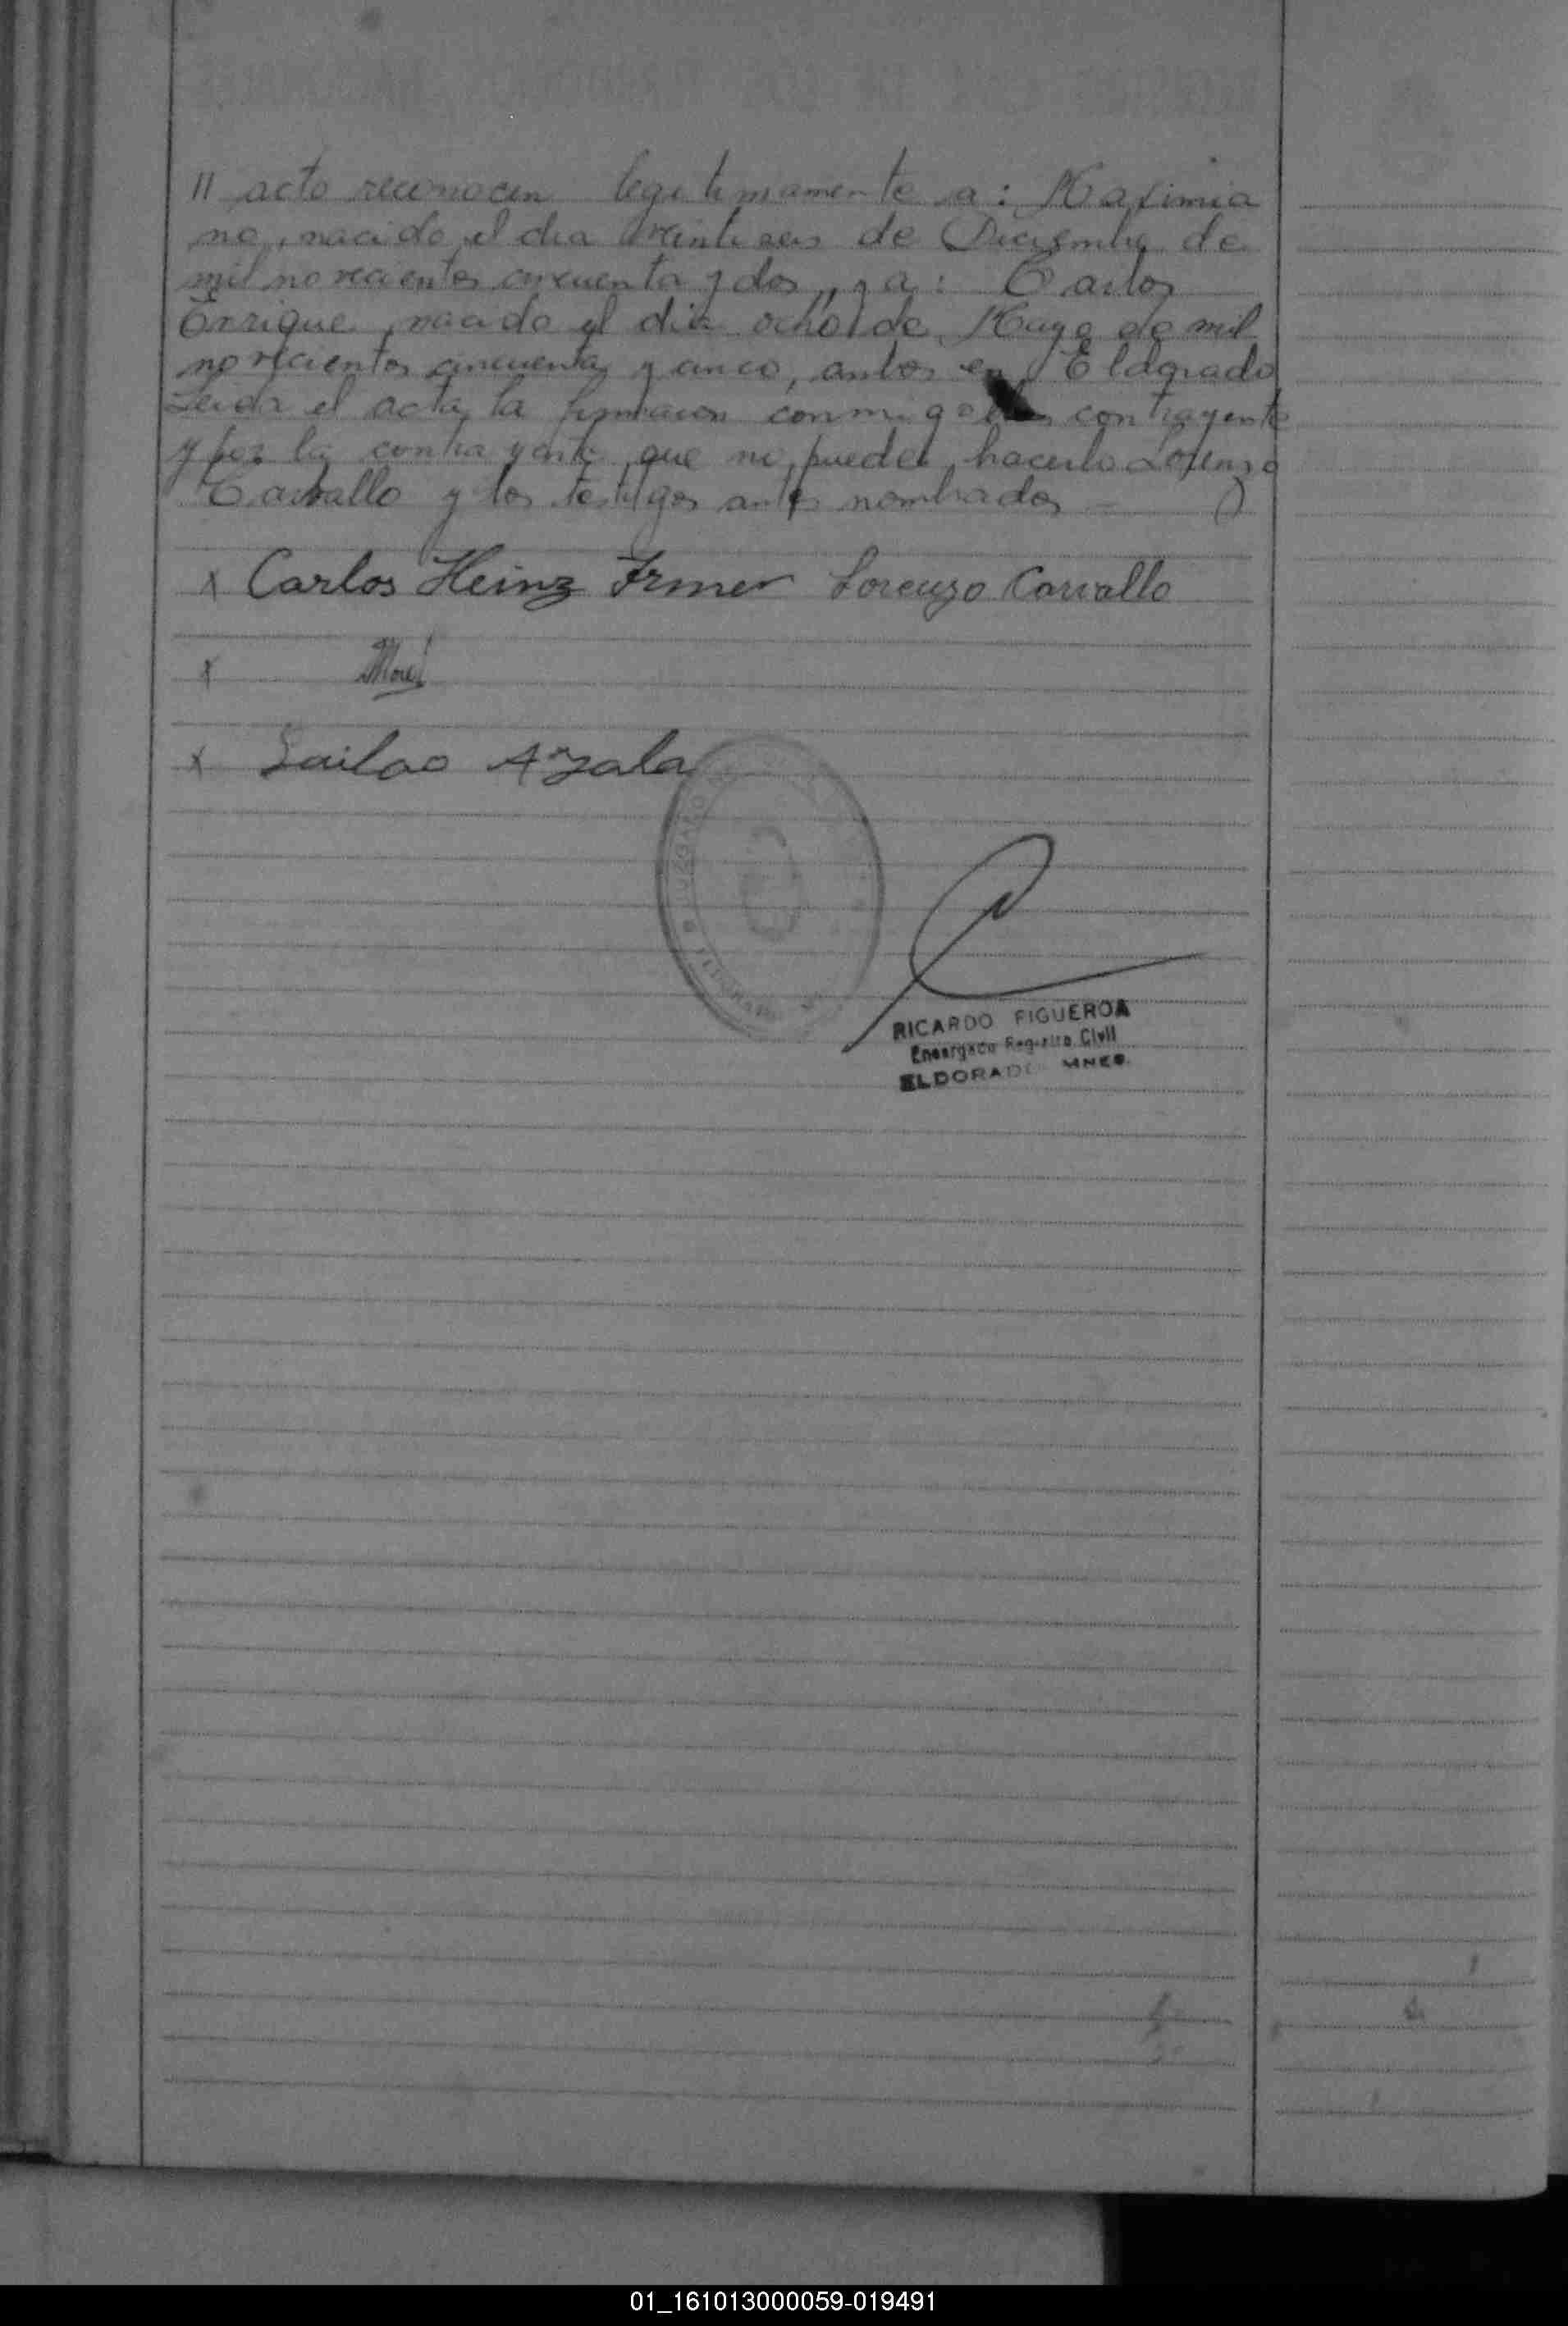 " acto reconocen legitimamente a: Maximia
no, nacido el dia veintiseis de Diciembre de
mil novecientos cincuenta y dos, y a: Carlos
Enrique, nacido el dia ocho de Mayo de mil
novecientos cincuenta y cinco, ambos en Eldorado
Leida el acta, la firmaron conmigo el contrayente
y por la contrayente, que no puede hacerlo Lorenzo
Carvallo y los testigos antes nombrados =
x Carlos Heinz Irmer Lorenzo Carvallo
x
x Ayala
JUZGADO
ELDORADO
RICARDO FIGUEROA
Encargado Registro Civil
ELDORADO MNES.
01_161013000059-019491